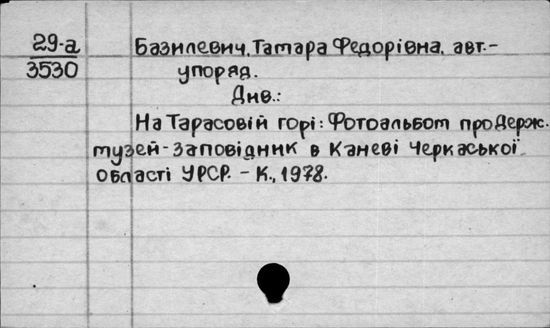 29-а
3530
Базилевич, Тамара Федорівна, авт.-
упоряд.
Див.:
На Тарасовій горі: Фотоальбом про Держ.
музей-заповідник в Каневі Черкаської
області УРСР. - К., 1978.